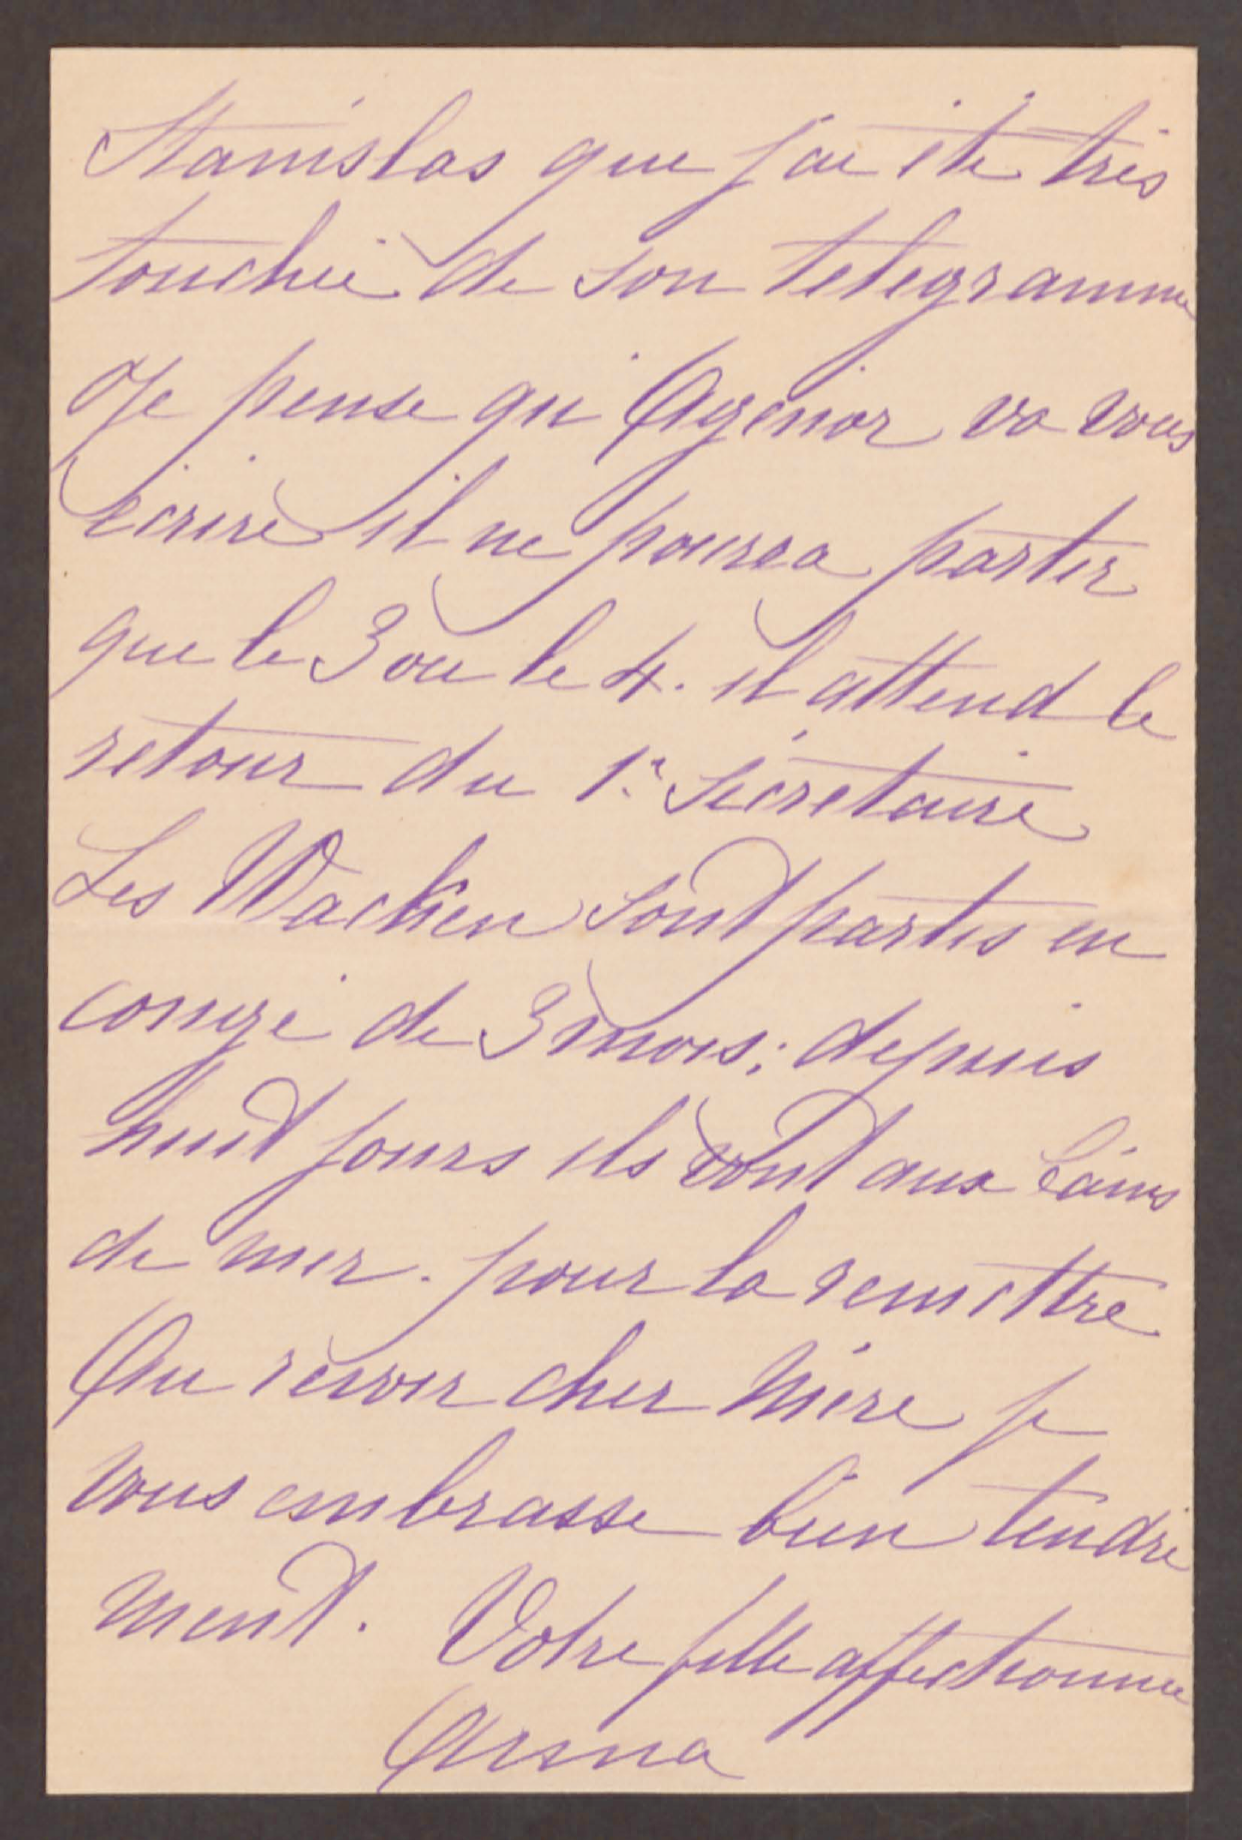 Stanislas que j'ai été très
touchée de son telegramme
Je pense qu'Agénor va vous
écrire il ne pourra partir
que le 3 ou le 4. il attend le
retour du 1r sécretaire
Les Wacken sont partis en
congé de 3 mois; depuis
huit jours ils vont aux bains
de mer. pour la remettre
Au revoir cher Mère je
vous embrasse bien tendre
ment. Votre fille affectionnée